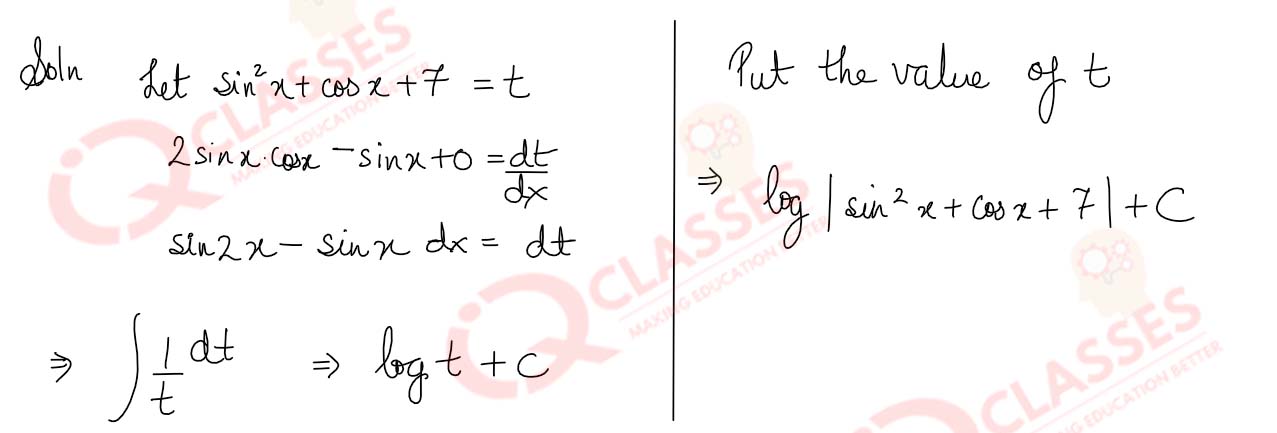 Soln Let sin²x + cos x + 7 = t
2 sinx·cosx − sinx + 0 = dt/dx
sin2x − sinx dx = dt
⇒ ∫ 1/t dt ⇒ log t + c
Put the value of t
⇒ log |sin²x + cos x + 7| + C
IQ CLASSES
MAKING EDUCATION BETTER
IQ CLASSES
MAKING EDUCATION BETTER
IQ CLASSES
MAKING EDUCATION BETTER